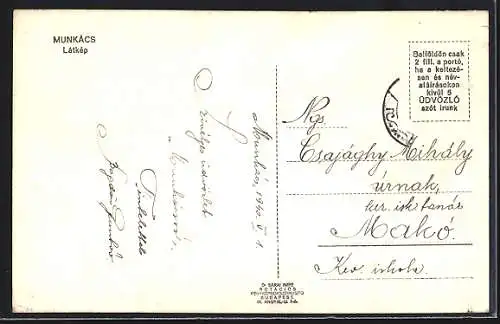 MUNKÁCS
Látkép
Belföldön csak
2 fill. a portó,
ha a keltezé-
sen és név-
aláírásokon
kívül 5
ÜDVÖZLŐ
szót írunk
Munkács, 1940. V. 1.
üdvözlet
Munkácsról
Tisztelettel
Ngs.
Csajághy Mihály
úrnak,
ker. isk. tanár
Makó.
Ker. iskola.
BUDAPEST